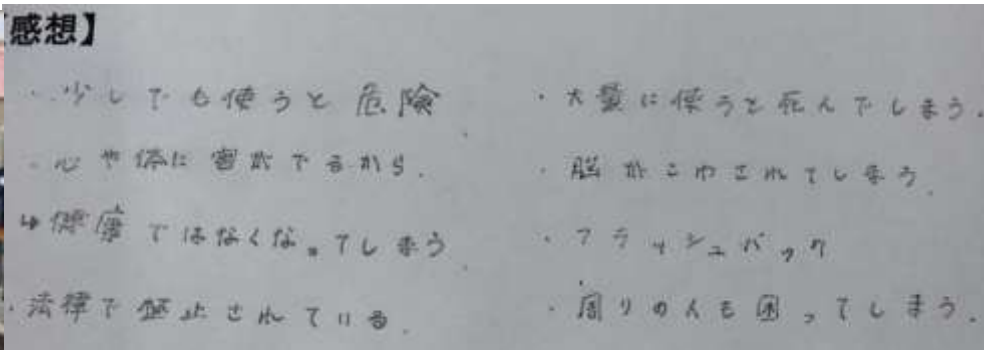 感想】
・少しでも使うと危険.
・心や体に害がでるから.
↳健康ではなくなってしまう.
・法律で禁止されている.
・大量に使うと死んでしまう.
・脳がこわされてしまう.
・フラッシュバック
・周りの人も困ってしまう.